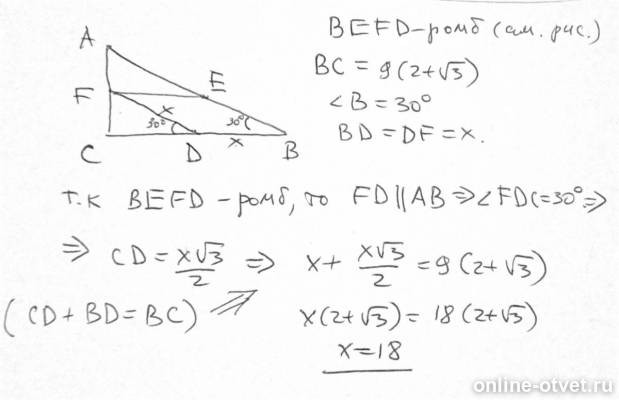 BEFD-ромб (см. рис.)
BC = 9(2+√3)
∠B = 30°
BD = DF = x.
A
F
E
x
30°
30°
x
C
D
B
т.к BEFD - ромб, то FD||AB ⇒ ∠FDC=30° ⇒
⇒ CD = x√3/2 ⇒ x + x√3/2 = 9(2+√3)
(CD + BD = BC) ⇒ x(2+√3) = 18(2+√3)
x=18
online-otvet.ru